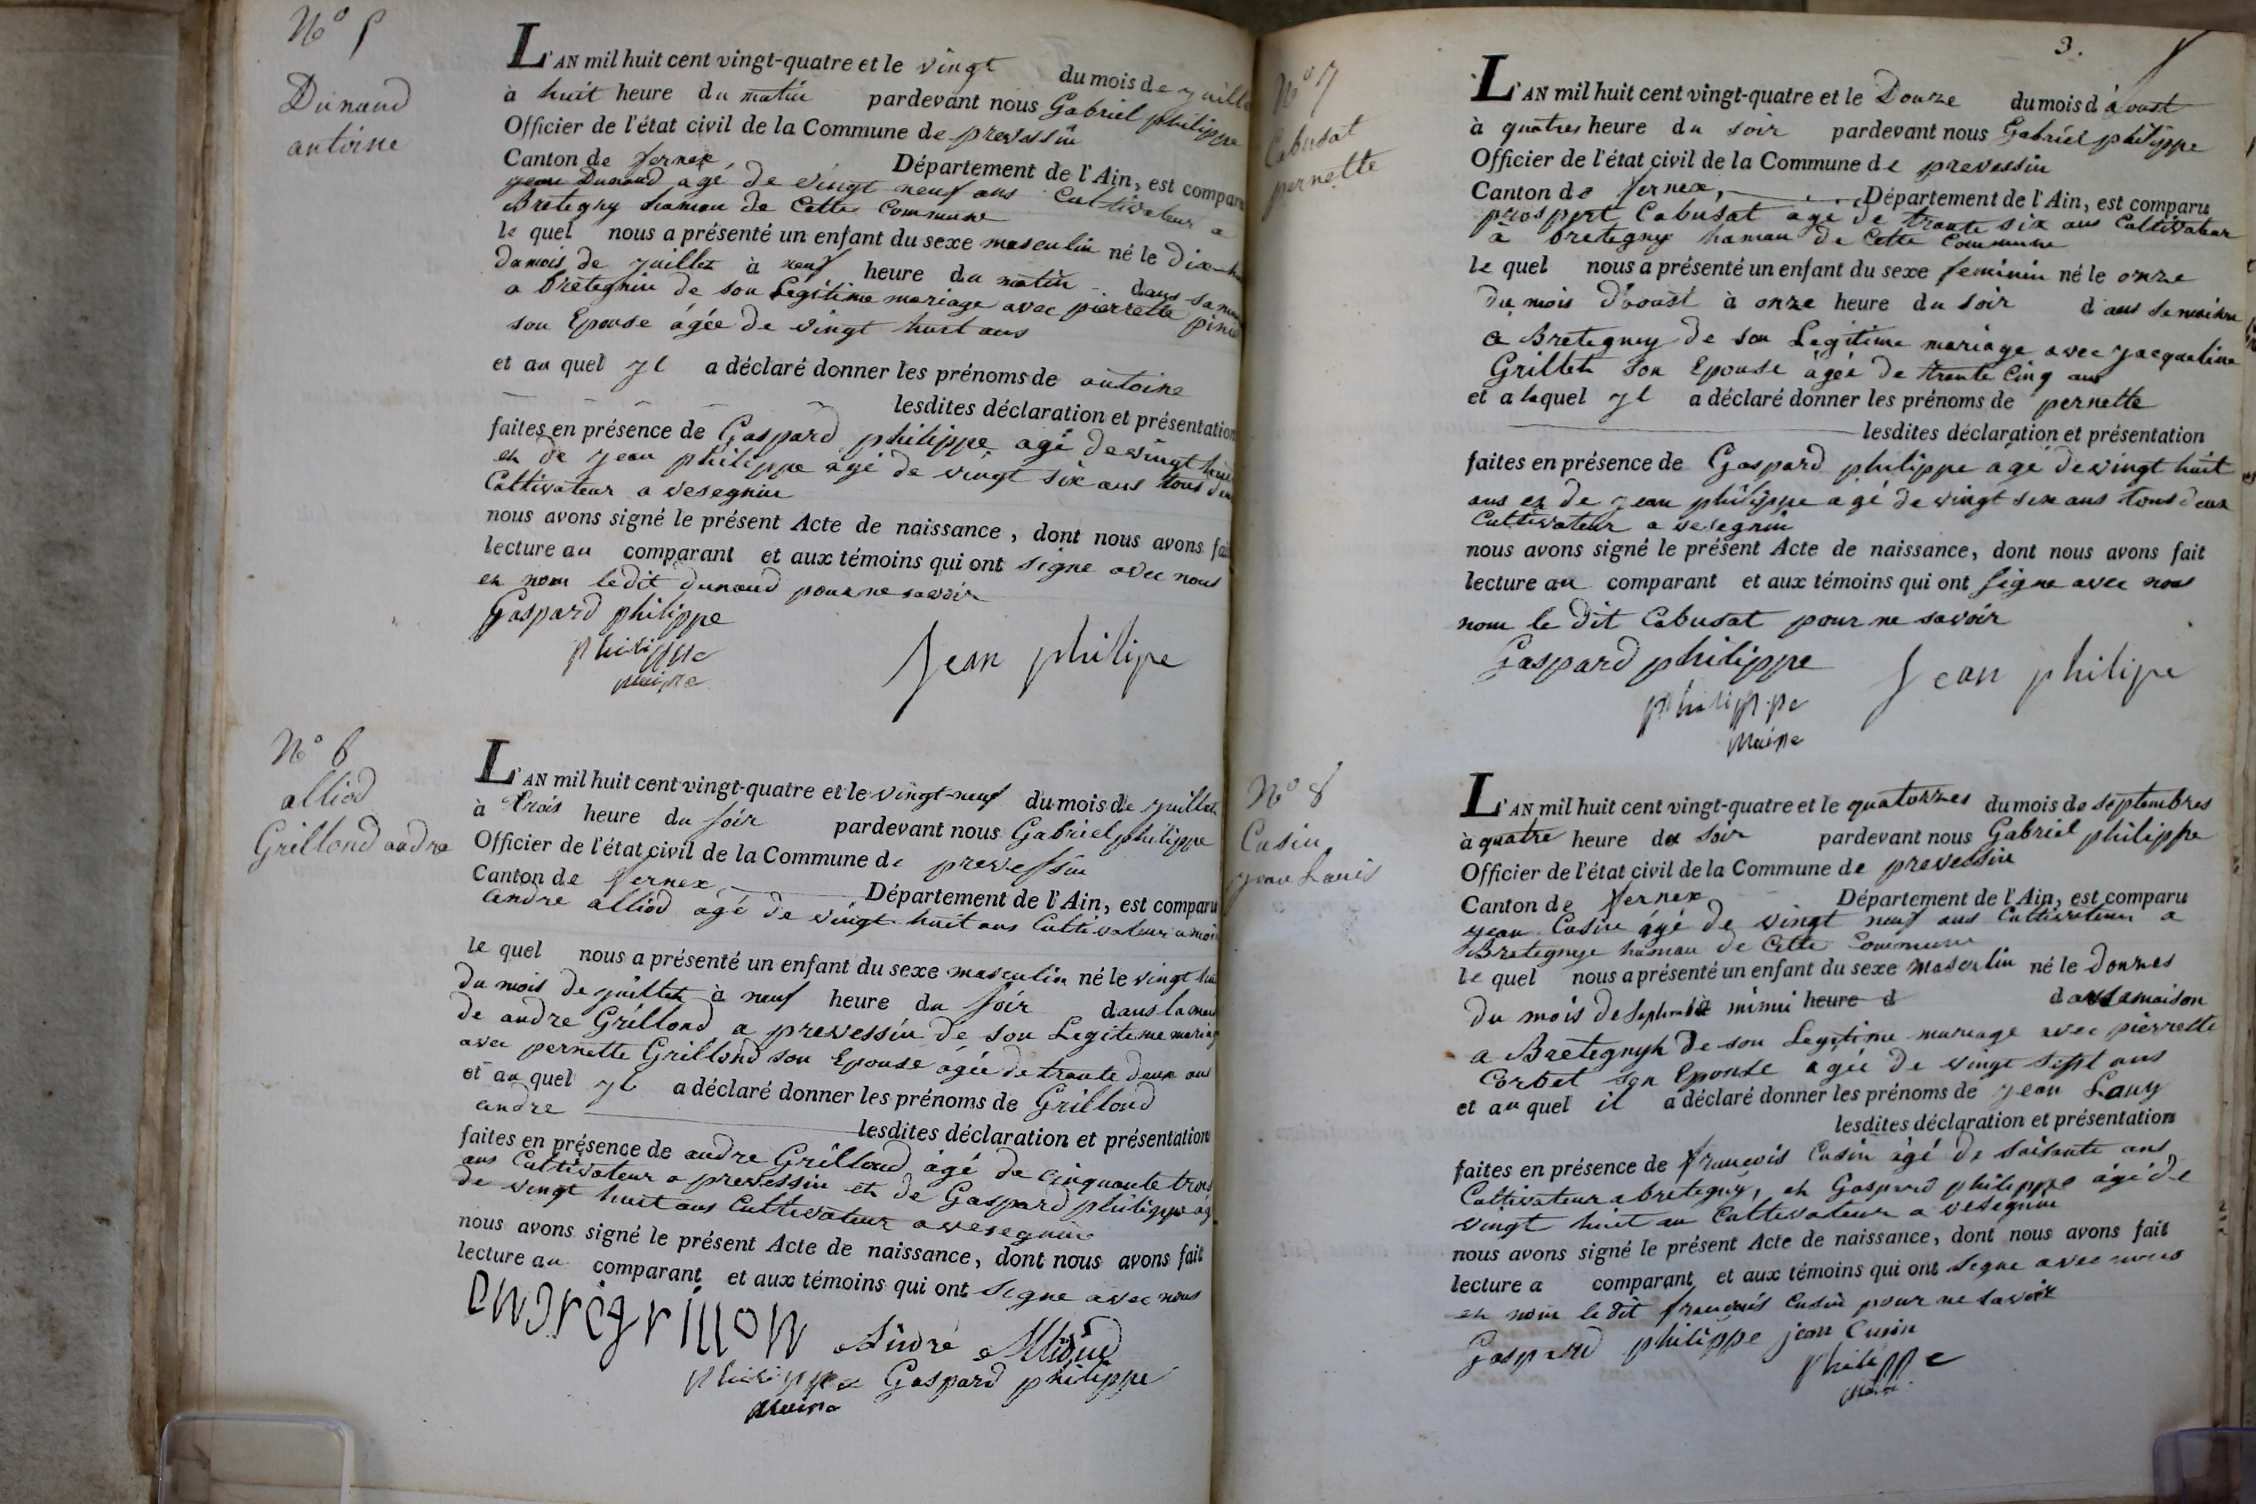 N° 5
Dunand
antoine
L'AN mil huit cent vingt-quatre et le vingt du mois de
à huit heure du matin pardevant nous Gabriel philippe
Officier de l'état civil de la Commune de prevessin
Canton de fernex Département de l'Ain, est
jean Dunand agé de vingt neuf ans Cultivateur a
Bretegny hamau de Cette Commune
le quel nous a présenté un enfant du sexe masculin né le
du mois de juillet à neuf heure du matin dans
a bretegnin de son Legitime mariage avec pierrette
son Epouse âgée de vingt huit ans
et au quel yl a déclaré donner les prénoms de antoine
lesdites déclaration et présentation
faites en présence de Gaspard philippe agé de vingt
et de jean philippe agé de vingt six ans tous
Cultivateur a vesegnin
nous avons signé le présent Acte de naissance, dont nous avons
lecture au comparant et aux témoins qui ont signe avec nous
et nom ledit dunand pour ne savoir
Gaspard philippe
philippe
maire
jean philipe
N° 6
alliod
Grillond andre
L'AN mil huit cent vingt-quatre et le vingt-neuf du mois de juillet
à trois heure du soir pardevant nous Gabriel philippe
Officier de l'état civil de la Commune de prevessin
Canton de fernex Département de l'Ain, est comparu
andre alliod agé de vingt huit ans Cultivateur
le quel nous a présenté un enfant du sexe masculin né le vingt
du mois de juillet à neuf heure du soir dans
de andre Grillond a prevessin de son Legitime
avec pernette Grillond son Epouse âgée de trante deux ans
et au quel yl a déclaré donner les prénoms de Grillond
andre
lesdites déclaration et présentation
faites en présence de andre Grillond âgé de cinquante trois
ans Cultivateur a prevessin et de Gaspard philippe
de vingt huit ans Cultivateur a vesegnin
nous avons signé le présent Acte de naissance, dont nous avons fait
lecture au comparant et aux témoins qui ont signe avec nous
andregrillon André Alliod
philippe Gaspard philippe
maire
3.
N° 7
Cabusat
pernette
L'AN mil huit cent vingt-quatre et le Douze du mois d'aoust
à quatres heure du soir pardevant nous Gabriel philippe
Officier de l'état civil de la Commune de prevessin
Canton de fernex, Département de l'Ain, est comparu
prospert Cabusat agé de trante six ans Cultivateur
a bretegny hamau de Cette Commune
le quel nous a présenté un enfant du sexe feminin né le onze
du mois d'aoust à onze heure du soir dans
a Bretegny de son Legitime mariage avec jacqueline
Grillet son Epouse âgée de trante cinq ans
et a laquel yl a déclaré donner les prénoms de pernette
lesdites déclaration et présentation
faites en présence de Gaspard philippe âgé de vingt huit
ans et de jean philippe agé de vingt six ans tous deux
Cultivateur a vesegnin
nous avons signé le présent Acte de naissance, dont nous avons fait
lecture au comparant et aux témoins qui ont signe avec nous
nom le dit Cabusat pour ne savoir
Gaspard philippe
philippe
maire
jean philipe
N° 8
Cusin
jean Louis
L'AN mil huit cent vingt-quatre et le quatorzes du mois de septembres
à quatre heure du soir pardevant nous Gabriel philippe
Officier de l'état civil de la Commune de prevessin
Canton de fernex Département de l'Ain, est comparu
jean Cusin âgé de vingt neuf ans Cultivateur a
Bretegnye hamau de Cette Commune
le quel nous a présenté un enfant du sexe masculin né le douzes
du mois de à minui heure d dans la maison
a Bretegnyh de son Legitime mariage avec pierrette
Corbet son Epouse agée de vingt sept ans
et au quel il a déclaré donner les prénoms de jean Louy
lesdites déclaration et présentation
faites en présence de francois Cusin âgé de soisante ans
Cultivateur a bretegny, et Gaspard philippe âgé de
vingt huit an Cultivateur a vesegnin
nous avons signé le présent Acte de naissance, dont nous avons fait
lecture a comparant et aux témoins qui ont signe avec nous
et nom le dit francois Cusin pour ne savoir
Gaspard philippe jean Cusin
philippe
maire